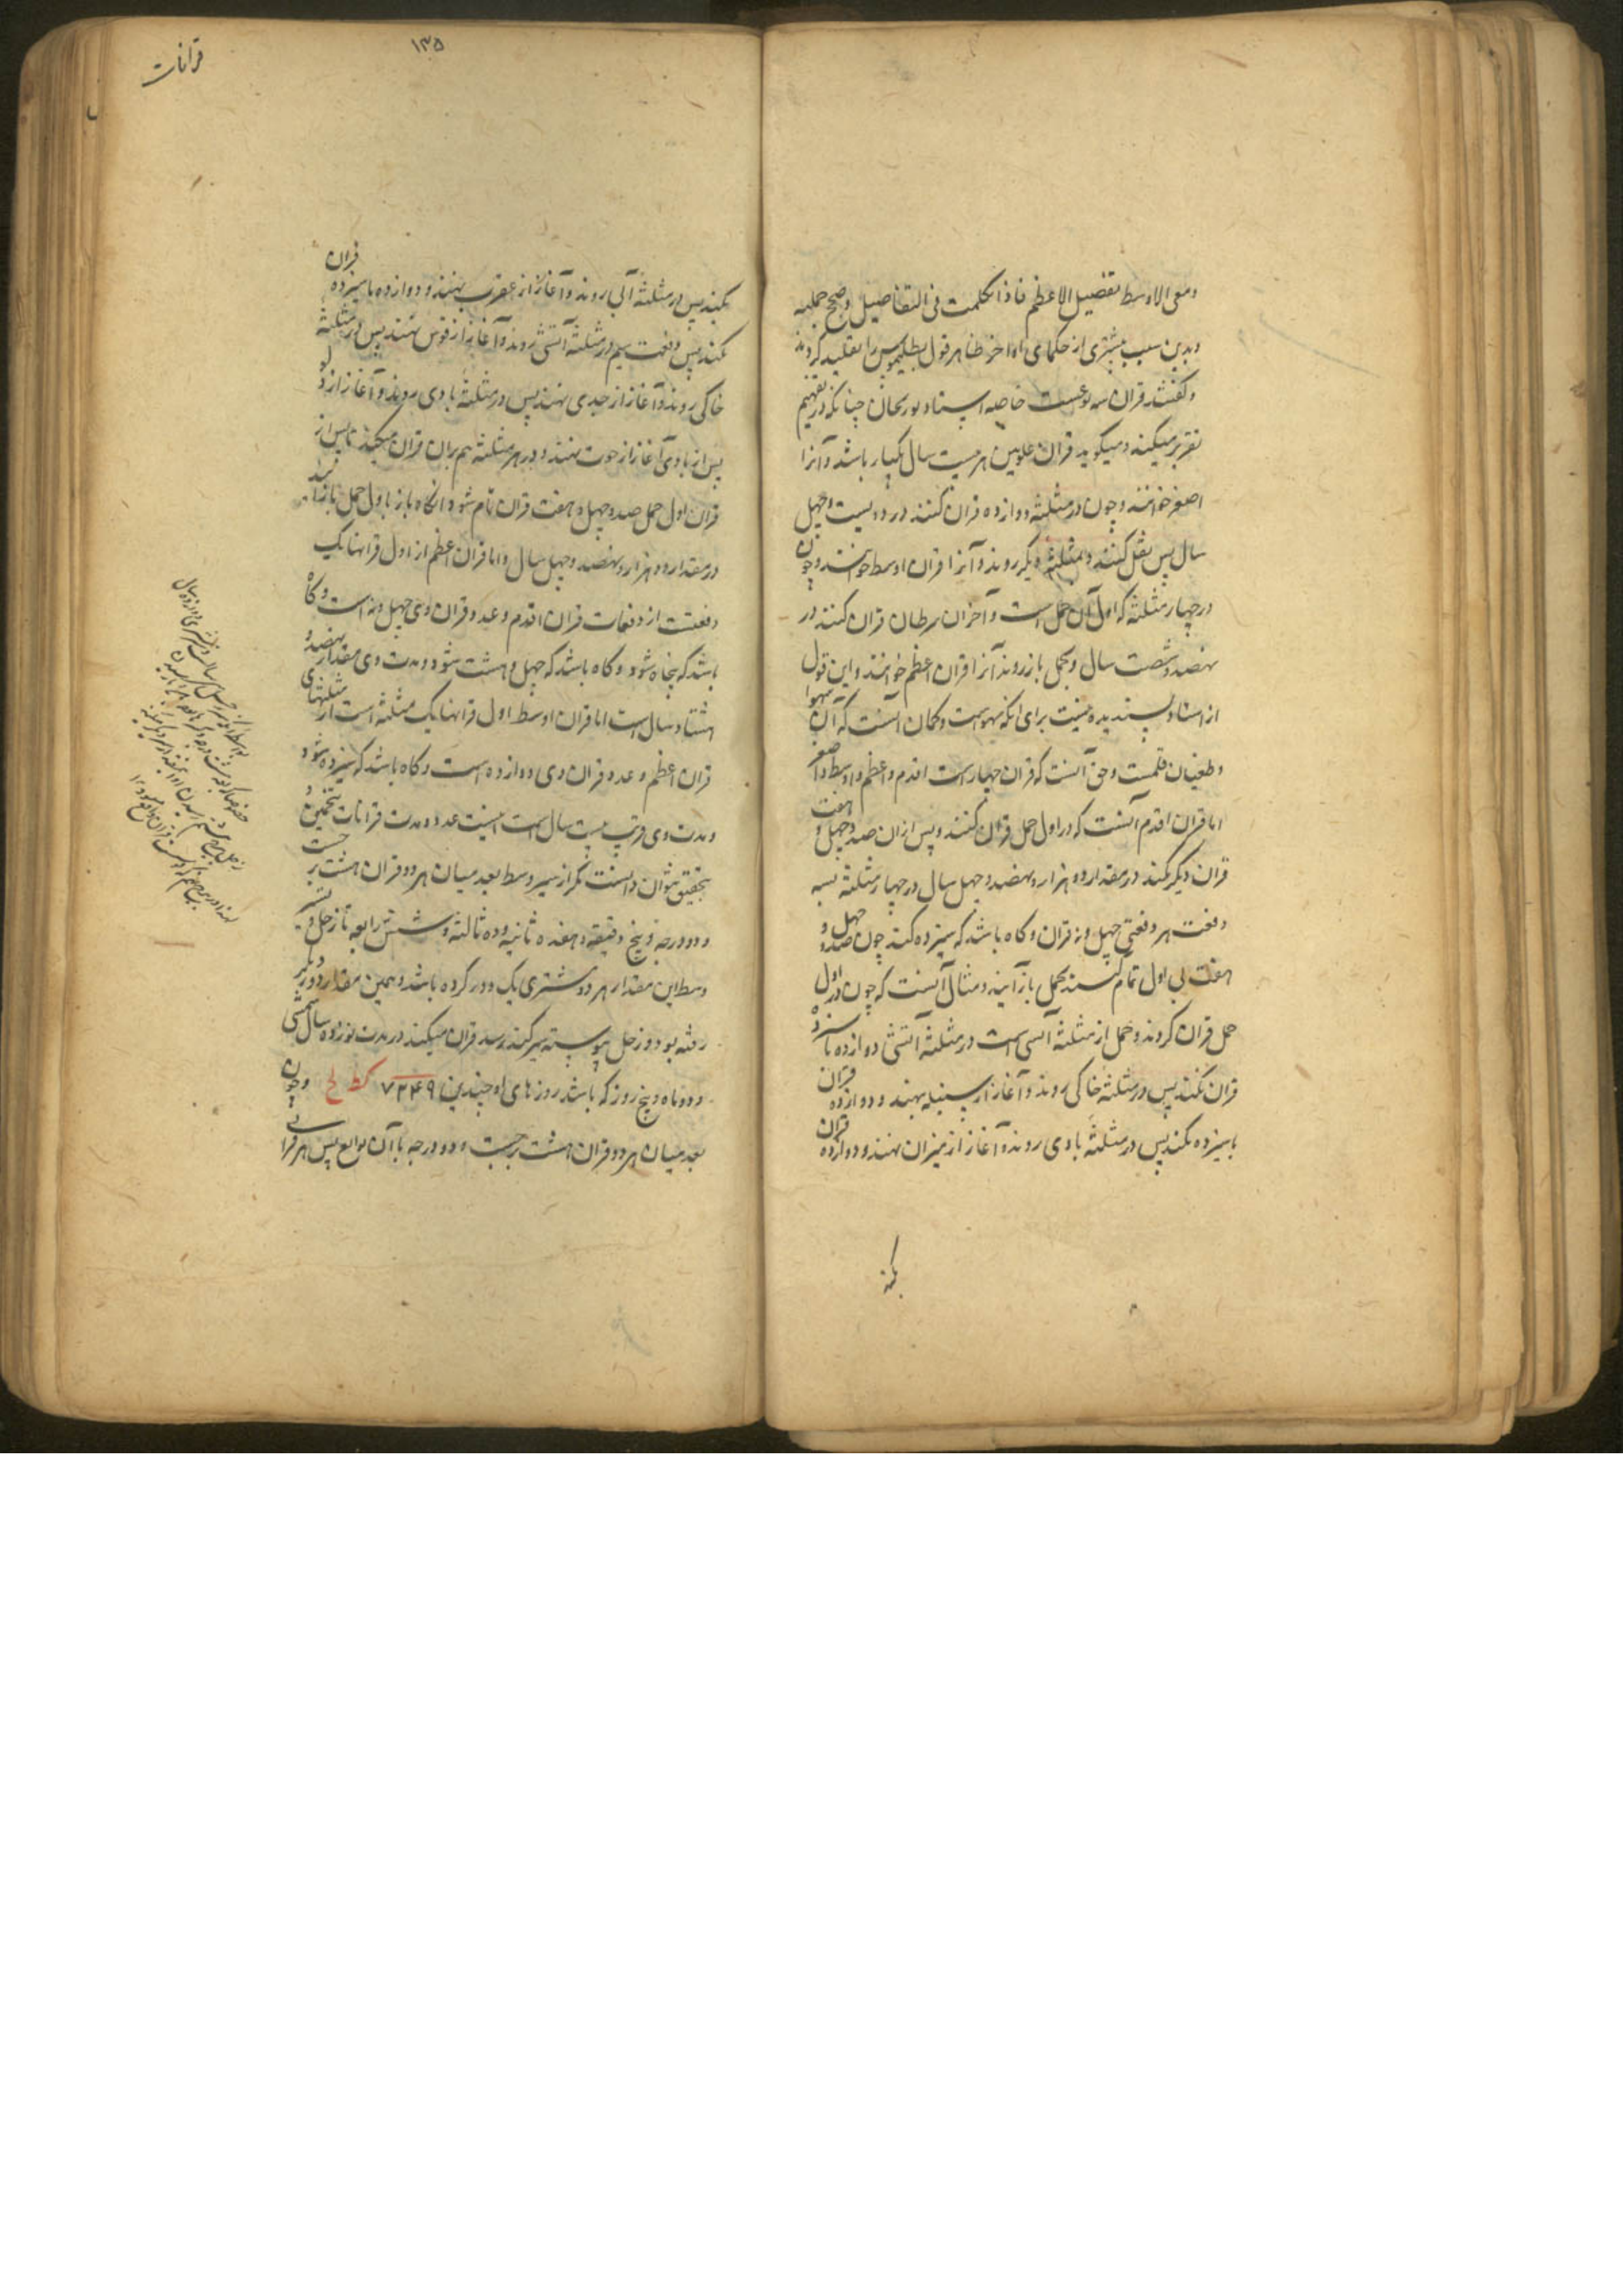 ومعی الاوسط تفضیل الاعظم فاذا تکلمت فی التفاصیل وضح جملیه
وبدین سبب بیشتری از حکمای اواخر ظاهر قول بطلیموس را تقلید کردند
وگفتند قران سه نوعست خاصه استاد بوریحان چنانکه در تفهیم
تقریر میکند ومیگوید قران علویین هر بیست سال یکبار باشد وآنرا
اصغر خوانند وچون در مثلثه دوازده قران کنند در دویست وچهل
سال پس نقل کنند وبمثلثه دیگر روند وآنرا قران اوسط خوانند وچون
در چهار مثلثه که اول آن حمل است وآخر آن سرطان قران کنند در
نهصد وشصت سال وبحمل باز روند آنرا قران اعظم خوانند واین قول
از استاد پسندیده نیست برای آنکه سهوست وگمان آنست که آن سهو از
طغیان قلمست وحق آنست که قران چهار است اقدم واعظم واوسط واصغر
اما قران اقدم آنست که در اول حمل قران کنند وپس از آن صد وچهل وهفت
قران دیگر بکند در مقدار دو هزار ونهصد وچهل سال در چهار مثلثه بسه
دفعت هر دفعتی چهل ونه قران وگاه باشد که سیزده کند چون صد وچهل و
هفت بی اول تمام کنند بحمل باز آیند ومثال آنست که چون در اول
حمل قران کردند وحمل از مثلثه آتشی است در مثلثه آتشی دوازده تا سیزده
قران بکنند پس در مثلثه خاکی روند وآغاز از سنبله نهند ودوازده قران
یا سیزده بکند پس در مثلثه بادی روند وآغاز از میزان نهند ودوازده قران
بکند
۱۳۵
قرانات
بکند پس در مثلثه آبی روند وآغاز از عقرب نهند ودوازده یا سیزده قران
بکند پس دفعت سیم در مثلثه آتشی روند وآغاز از قوس نهند پس در مثلثه
خاکی روند وآغاز از جدی نهند پس در مثلثه بادی روند وآغاز از دلو
پس از بادی آغاز از حوت نهند ودر هر مثلثه هم بر آن قران میکند تا پس از
قران اول حمل صد وچهل وهفت قران تمام شود آنگاه باز باول حمل باز آیند
در مقدار دو هزار ونهصد وچهل سال واما قران اعظم از اول قرانها یک
دفعتست از دفعات قران اقدم وعدد قران وی چهل ونه است وگاه
باشد که پنجاه شود وگاه باشد که چهل وهشت شود ومدت وی مقدار نهصد و
هشتاد سال است اما قران اوسط اول قرانها یک مثلثه است از مثلثهای
قران اعظم وعدد قران وی دوازده است وگاه باشد که سیزده شود
ومدت وی قریب بیست سال است اینست عدد ومدت قرانات بتخمین و
بتحقیق بتوان دانست مگر از سیر وسط بعد میان هر دو قران هشت برجست
ودو درجه وپنج دقیقه وهفده ثانیه وده ثالثه وشش رابعه تا زحل بسیر
وسط این مقدار برود ومشتری یک دور کرده باشد وهمین مقدار دور دیگر
رفته بود وزحل پیوسته سیر کند رسد قران میکند در مدت نوزده سال شمسی
ودو ماه وپنج روز که باشد روزهای او چندین ۷۲۴۹ کط لح وچون
بعد میان هر دو قران هشت برجست ودو درجه با آن توابع پس هر قرانی